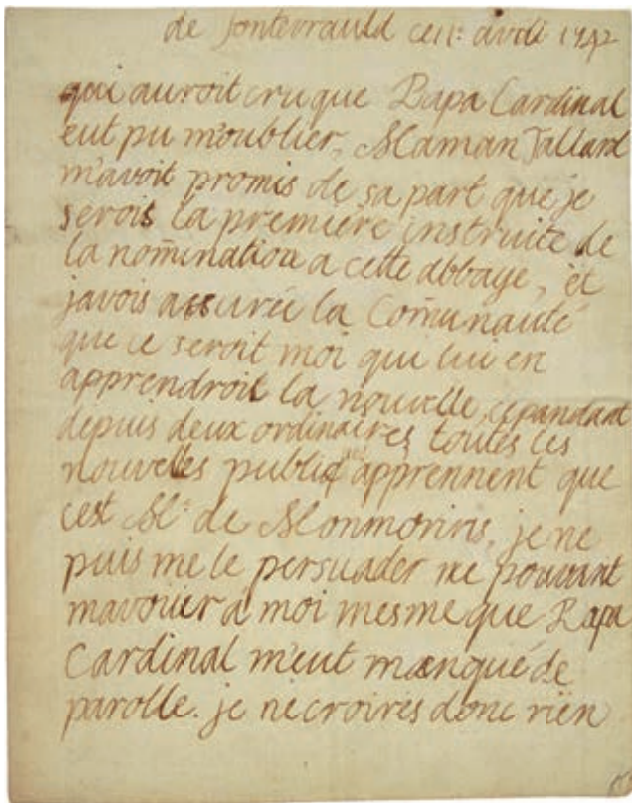 de fontevrauld ce 11: avril 1742
qui auroit cru que Papa Cardinal
eut pu m'oublier, Maman Tallard
m'avoit promis de sa part que je
serois la premiere instruite de
la nom̃ination a cette abbaye, et
javois assurée la Com̃unauté
que ce seroit moi qui lui en
apprendroit la nouvelle, cependant
depuis deux ordinaires toutes les
nouvelles publiques apprennent que
cest Me. de Monmorins, je ne
puis me le persuader ne pouvant
mavouer a moi mesme que Papa
Cardinal m'eut manqué de
parolle. je ne croires donc rien